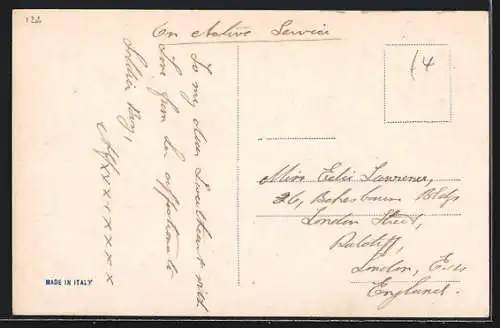 122
On Active Service
14
To my dear Sweetheart with
Love from her affectionate
Soldier Boy,
Alf x x x x x x x
Miss Edie Lawrence,
26, Buildings
London Street,
Ratcliff,
London, E.14
England.
MADE IN ITALY